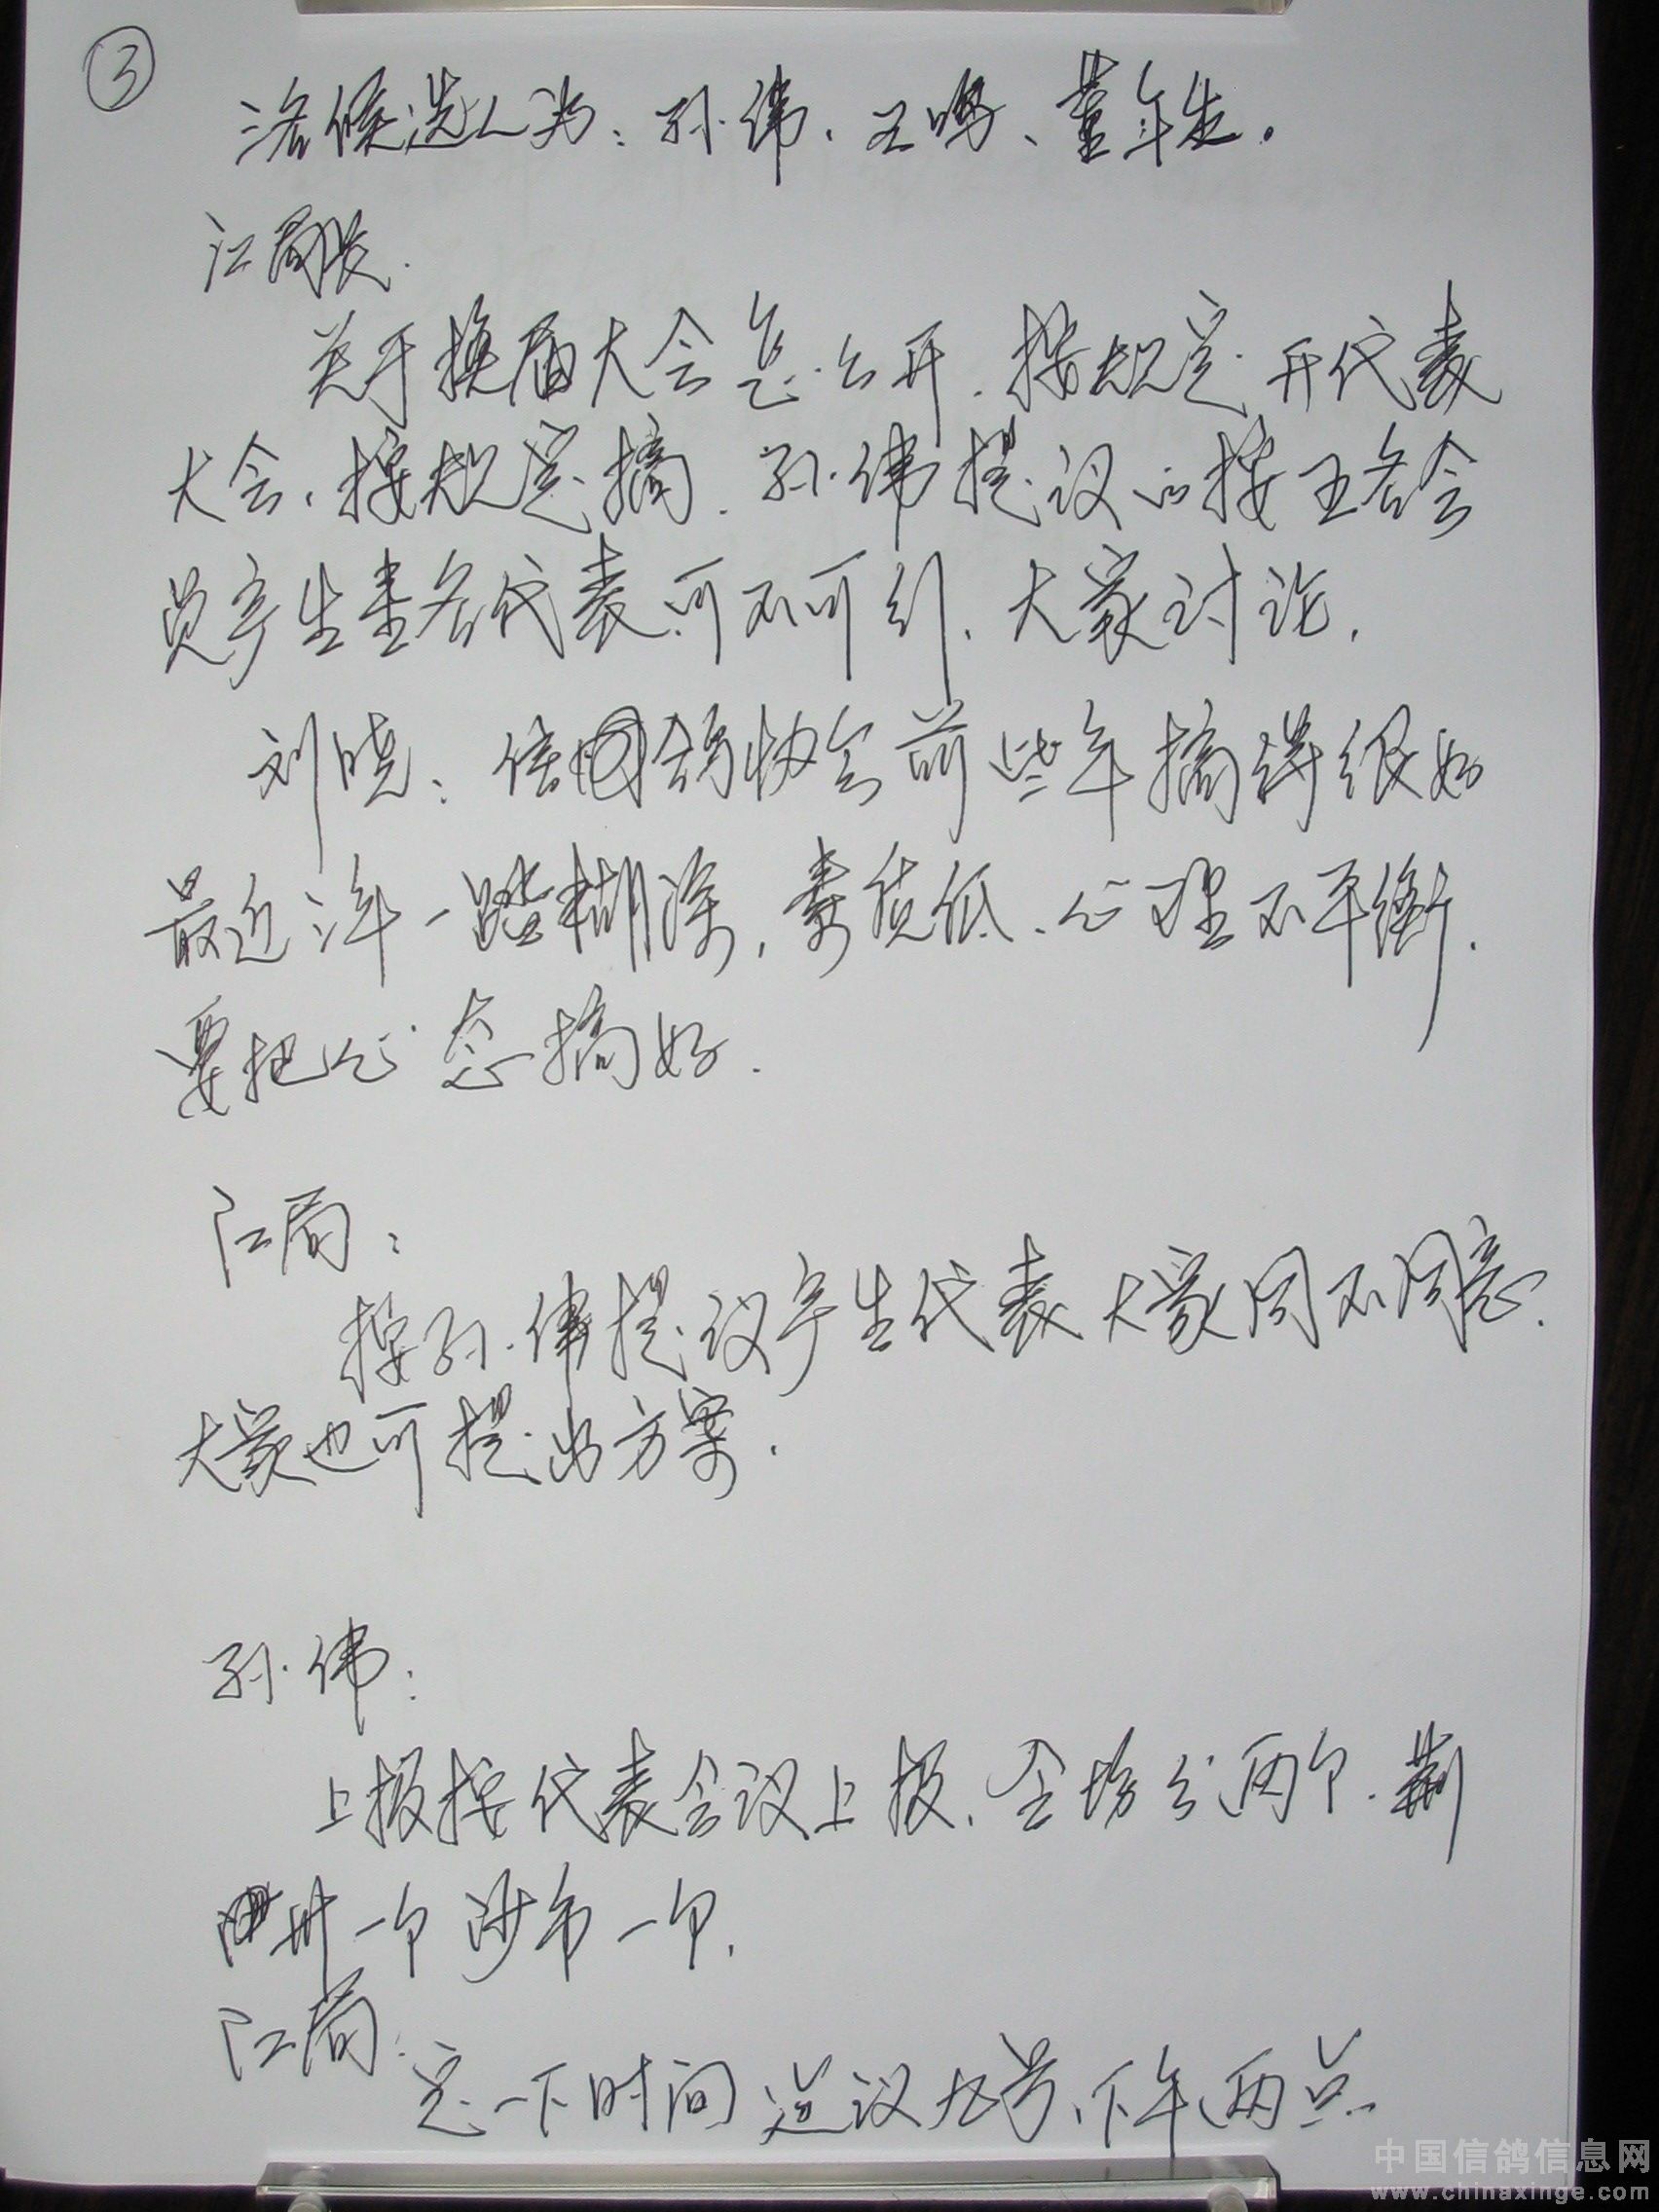 ③
三名候选人为：孙伟、王鸣、董年生。
江局长.
关于换届大会怎么开.按规定开代表
大会、按规定搞.孙伟提议的按五名会
员产生壹名代表可不可行、大家讨论.
刘晓：信鸽协会前些年搞得很好
最近三年一踏糊涂,素质低、心理不平衡.
要把心态搞好.
江局：
按孙伟提议产生代表大家同不同意.
大家也可提出方案.
孙伟：
上报按代表会议上报、分两个.荆
州一个沙市一个.
江局：
定一下时间 建议九号、下午两点
中国信鸽信息网
www.chinaxinge.com